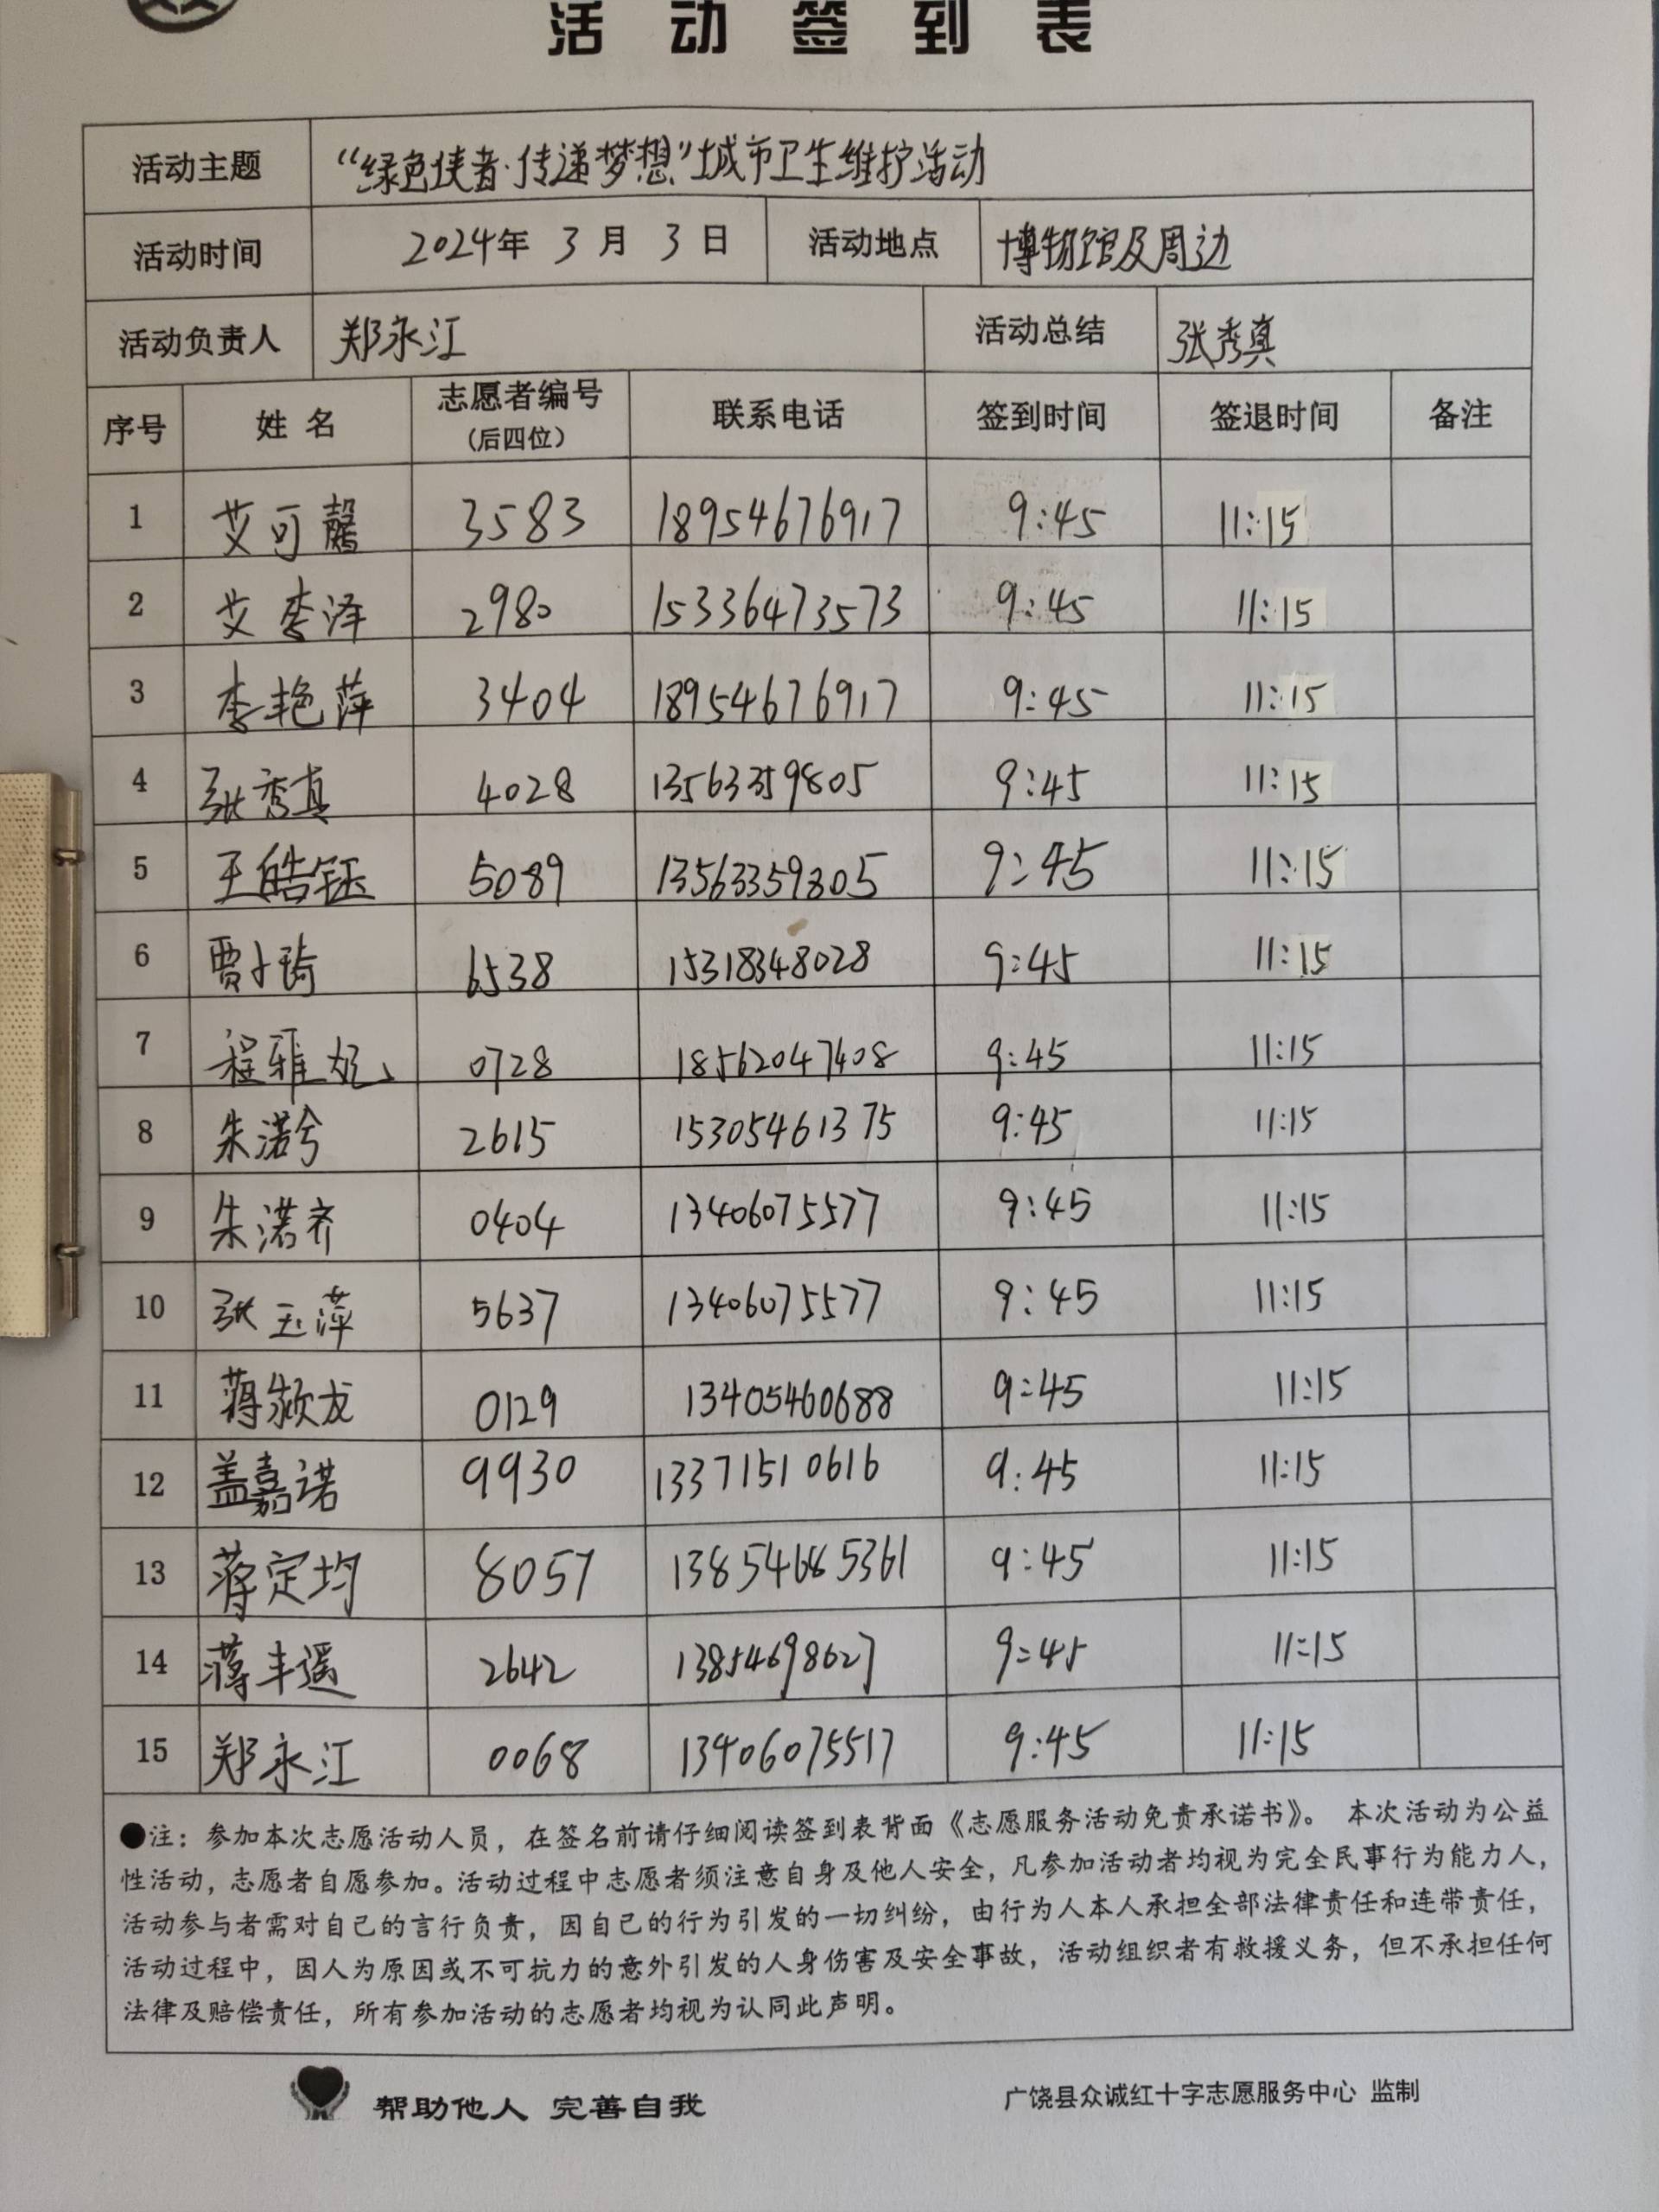 活动签到表
活动主题 “绿色使者·传递梦想”城市卫生维护活动
活动时间 2024年 3 月 3 日 活动地点 博物馆及周边
活动负责人 郑永江 活动总结 张秀真
序号 姓名 志愿者编号(后四位) 联系电话 签到时间 签退时间 备注
1 艾可馨 3583 18954676917 9:45 11:15
2 艾李泽 2980 15336473573 9:45 11:15
3 李艳萍 3404 18954676917 9:45 11:15
4 张秀真 4028 13563359805 9:45 11:15
5 王皓钰 5089 13563359805 9:45 11:15
6 贾小琦 6538 15318348028 9:45 11:15
7 程雅 0728 18562047408 9:45 11:15
8 朱诺兮 2615 15305461375 9:45 11:15
9 朱诺齐 0404 13406075577 9:45 11:15
10 张玉萍 5637 13406075577 9:45 11:15
11 蒋颖龙 0129 13405460688 9:45 11:15
12 盖嘉诺 9930 13371510616 9:45 11:15
13 蒋定均 8057 13854685361 9:45 11:15
14 蒋丰遥 2642 13854698627 9:45 11:15
15 郑永江 0068 13406075517 9:45 11:15
●注：参加本次志愿活动人员，在签名前请仔细阅读签到表背面《志愿服务活动免责承诺书》。 本次活动为公益
性活动，志愿者自愿参加。活动过程中志愿者须注意自身及他人安全，凡参加活动者均视为完全民事行为能力人，
活动参与者需对自己的言行负责，因自己的行为引发的一切纠纷，由行为人本人承担全部法律责任和连带责任，
活动过程中，因人为原因或不可抗力的意外引发的人身伤害及安全事故，活动组织者有救援义务，但不承担任何
法律及赔偿责任，所有参加活动的志愿者均视为认同此声明。
帮助他人 完善自我 广饶县众诚红十字志愿服务中心 监制